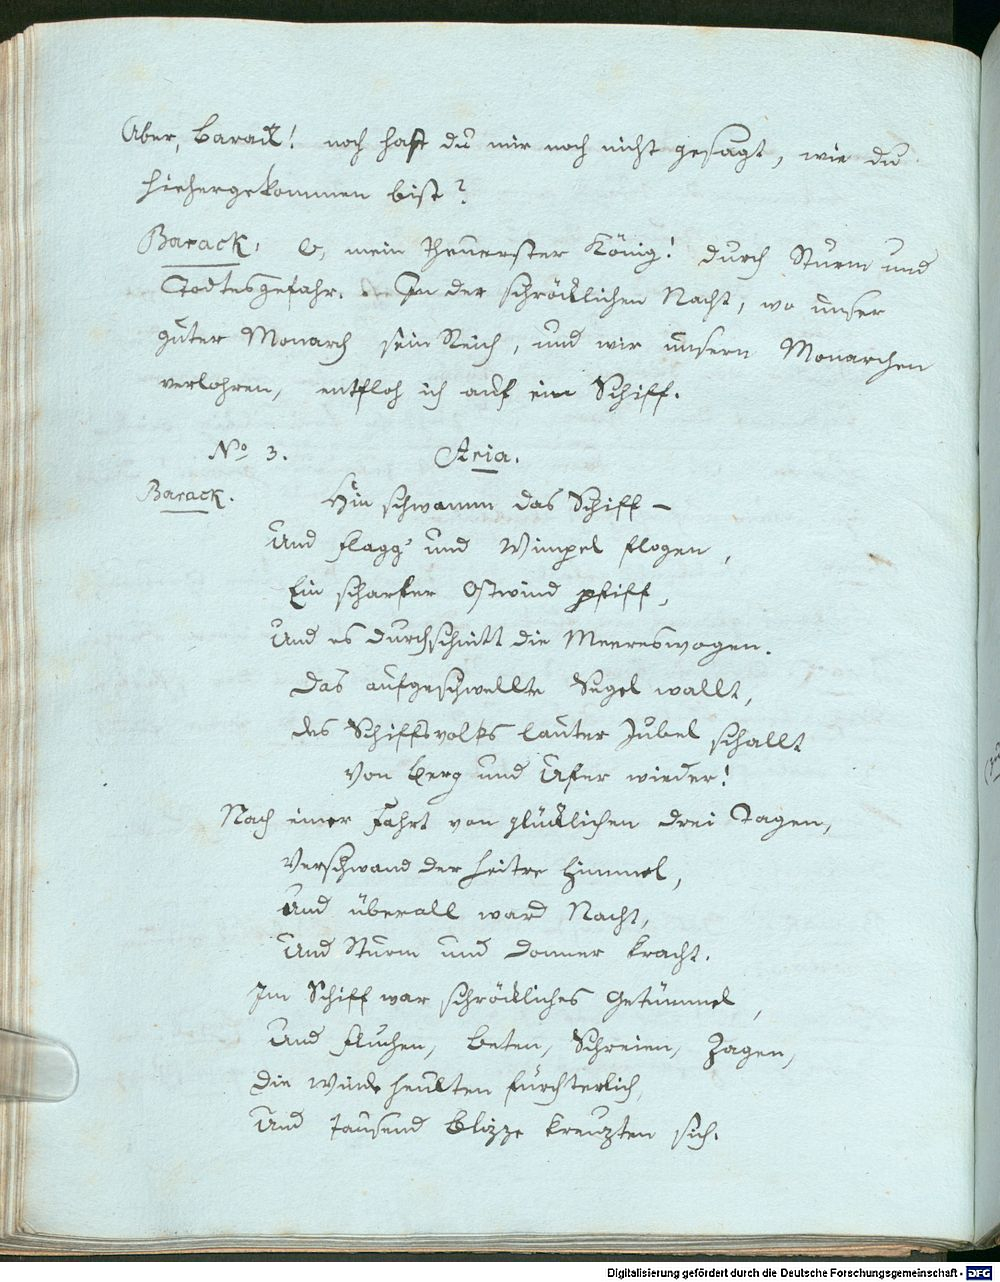 Aber, Barack! noch hast du mir noch nicht gesagt, wie du
hiehergekommen bist?
Barack. O, mein theuerster König! durch Sturm und
Todtesgefahr. In der schröcklichen Nacht, wo unser
guter Monarch sein Reich, und wir unsern Monarchen
verlohren, entfloh ich auf ein Schiff.
No 3. Aria.
Barack. Hin schwamm das Schiff –
Und Flagg' und Wimpel flogen,
Ein scharfer Ostwind pfiff,
Und es durchschnitt die Meereswogen.
Das aufgeschwellte Segel wallt,
des Schiffsvolks lauter Jubel schallt
Von Berg und Ufer wieder!
Nach einer Fahrt von glücklichen drei Tagen,
Verschwand der heitre Himmel,
Und überall ward Nacht,
Und Sturm und Donner kracht.
Im Schiff war schröckliches Getümmel,
Und Fluchen, Beten, Schreien, Zagen,
Die Winde heulten fürchterlich,
Und tausend Blizze kreuzten sich.
Digitalisierung gefördert durch die Deutsche Forschungsgemeinschaft - DFG